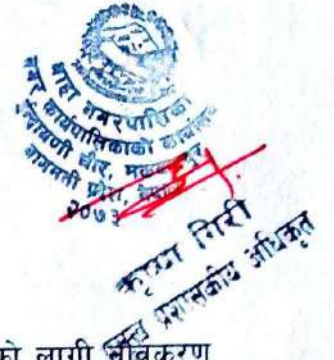 थाहा नगरपालिका
नगर कार्यपालिकाको कार्यालय
मकवानपुर
बागमती प्रदेश, नेपाल
२०७३
कृष्ण गिरी
प्रमुख प्रशासकीय अधिकृत
को लागी नविकरण